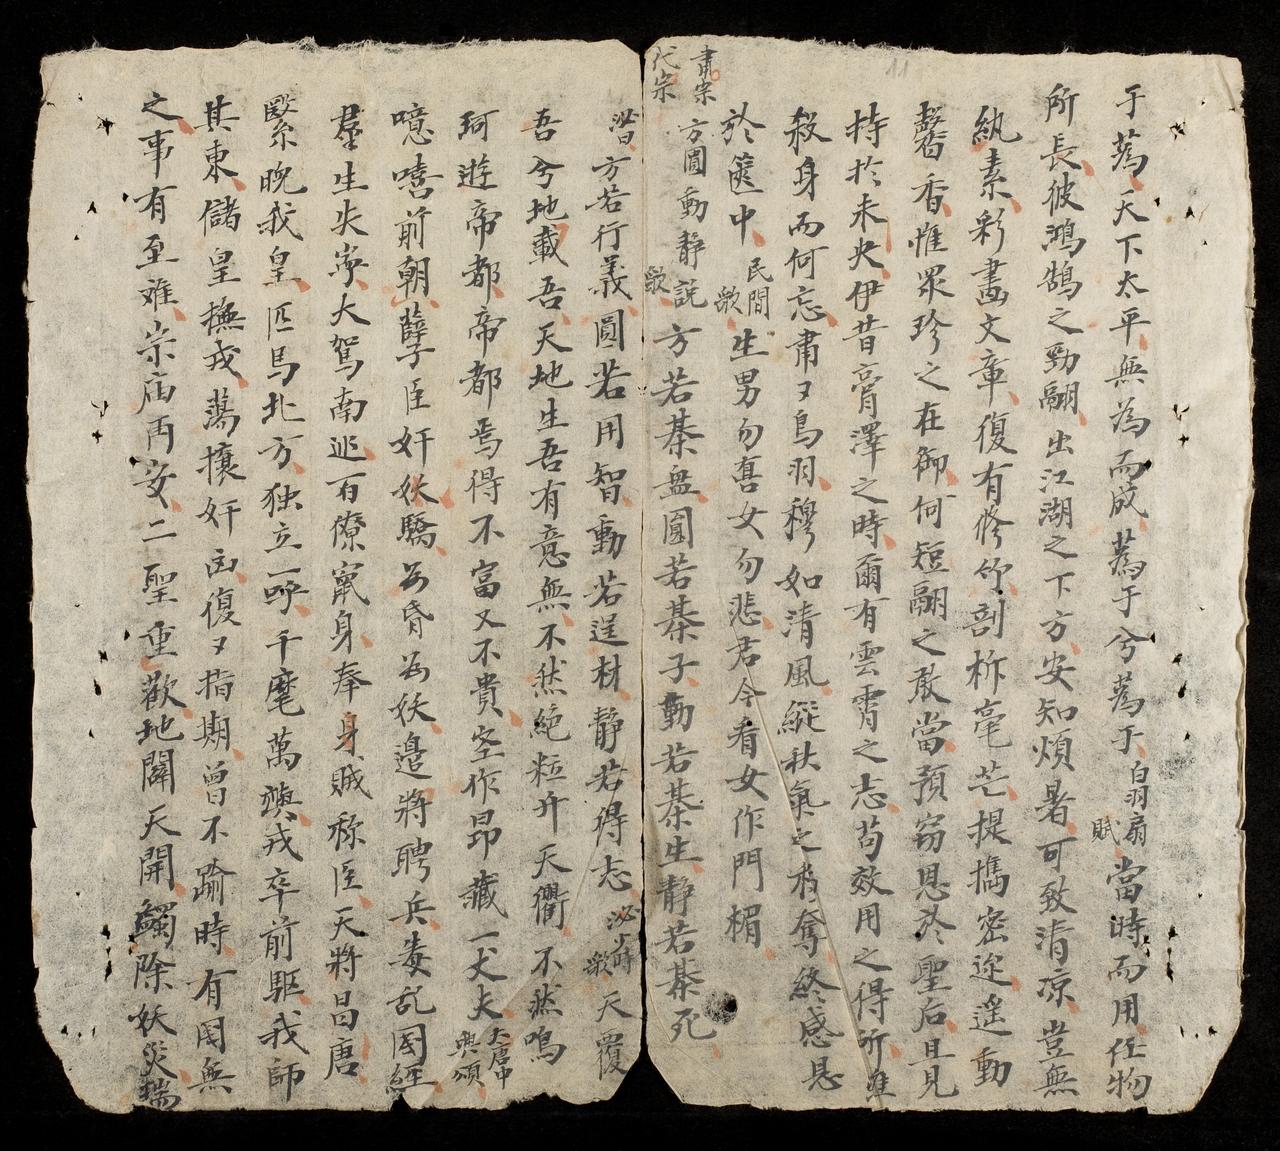 于蔿天下太平無為而成蔿于兮蔿于白羽扇賦當時而用任物
所長彼鴻鵠之勁翮出江湖之下方安知煩暑可致清凉豈無
紈素彩畫文章復有修竹剖柝毫芒提攜密迩遥動
馨香惟眾珍之在御何短翮之敢當預竊恩於聖后且見
持於未央伊昔膏澤之時爾有雲霄之志苟效用之得所雖
殺身而何忘肅〻鳥羽穆如清風縱秋氣之移奪終感恩
於篋中民間歌生男勿喜女勿悲君今看女作門楣
肅宗
代宗
方圓動靜説歌方若棊盘圓若棊子動若棊生静若棊死
泌曰方若行義圓若用智動若逞材静若得志泌天歌天覆
吾兮地載吾天地生吾有意無不然絶粒升天衢不然鳴
珂遊帝都帝都焉得不富又不貴空作昂藏一丈夫大唐中興頌
噫嘻前朝孽臣奸妖驕為昏為妖邉將聘兵毒乱國經
羣生失寧大駕南廵百僚竄身奉身賊称臣天將昌唐
緊晩我皇匹馬北方独立一呼千麾萬旟戎卒前驅我師
其東儲皇撫戎蕩攘奸凶復〻指期曾不踰時有國無
之事有至难宗庙再安二聖重歡地闢天開蠲除妖災瑞